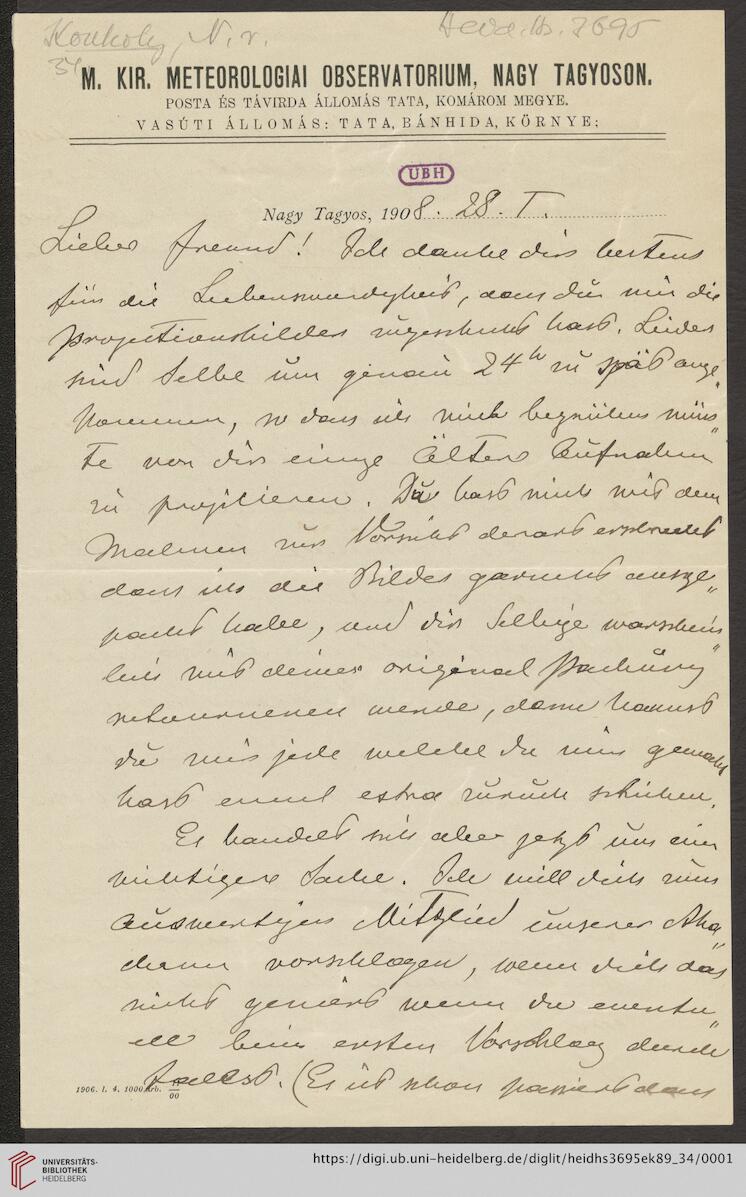 Konkoly, N. v.
Heid. Hs. 3695
34
M. KIR. METEOROLOGIAI OBSERVATORIUM, NAGY TAGYOSON.
POSTA ÉS TÁVIRDA ÁLLOMÁS TATA, KOMÁROM MEGYE.
VASÚTI ÁLLOMÁS: TATA, BÁNHIDA, KÖRNYE;
UBH
Nagy Tagyos, 1908. 28. I.
Lieber Freund! Ich danke dir bestens
für die Liebenswürdigkeit, dass du mir die
Projectionsbilder zugeschickt hast. Leider
sind selbe um genau 24h zu spät ange„
kommen, so dass ich mich begnügen müss„
te von dir einige Älter Aufnahmen
zu projitieren. Du hast mich mit dem
Mahnen zur Vorsicht derart erschreckt
dass ich die Bilder garnicht ausge„
packt habe, und dir selbige warschein„
lich mit deiner original Packung
retournieren werde, dann kannst
du mir jede welche du mir gemacht
hast extra zurück schicken.
Es handelt sich aber jetzt um eine
wichtigere Sache. Ich will dich zum
Auswertigen Mitglied unserer Aka„
demie vorschlagen, wenn dich das
nicht geniert wenn du eventu„
ell beim ersten Vorschlag durch
fallst. (Es ist schon passiert dass
1906. I. 4. 1000 Arb. 00
UNIVERSITÄTS-
BIBLIOTHEK
HEIDELBERG
https://digi.ub.uni-heidelberg.de/diglit/heidhs3695ek89_34/0001